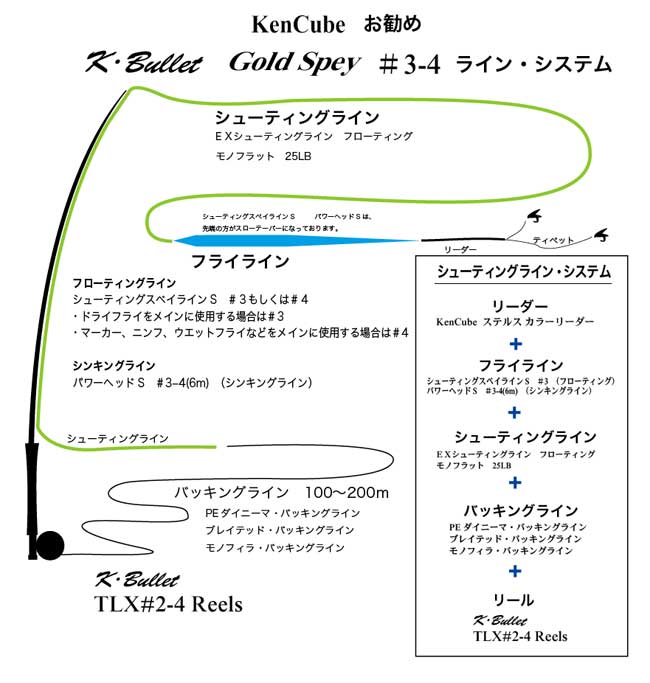 KenCube お勧め
K・Bullet Gold Spey ＃3-4 ライン・システム
シューティングライン
ＥＸシューティングライン　フローティング
モノフラット　25LB
シューティングスペイラインＳ　　パワーヘッドＳは、
先端の方がスローテーパーになっております。
リーダー
ティペット
フライライン
フローティングライン
シューティングスペイラインＳ　＃３もしくは＃４
・ドライフライをメインに使用する場合は＃３
・マーカー、ニンフ、ウエットフライなどをメインに使用する場合は＃４
シンキングライン
パワーヘッドＳ　＃3−4(6m)　（シンキングライン）
シューティングライン
バッキングライン　100〜200m
PEダイニーマ・バッキングライン
ブレイテッド・バッキングライン
モノフィラ・バッキングライン
K・Bullet
TLX#2-4 Reels
シューティングライン・システム
リーダー
KenCube ステルス カラーリーダー
+
フライライン
シューティングスペイラインＳ　＃3　（フローティング）
パワーヘッドＳ　＃3-4(6m)　（シンキングライン）
+
シューティングライン
ＥＸシューティングライン　フローティング
モノフラット　25LB
+
バッキングライン
PEダイニーマ・バッキングライン
ブレイテッド・バッキングライン
モノフィラ・バッキングライン
+
リール
K・Bullet
TLX#2-4 Reels